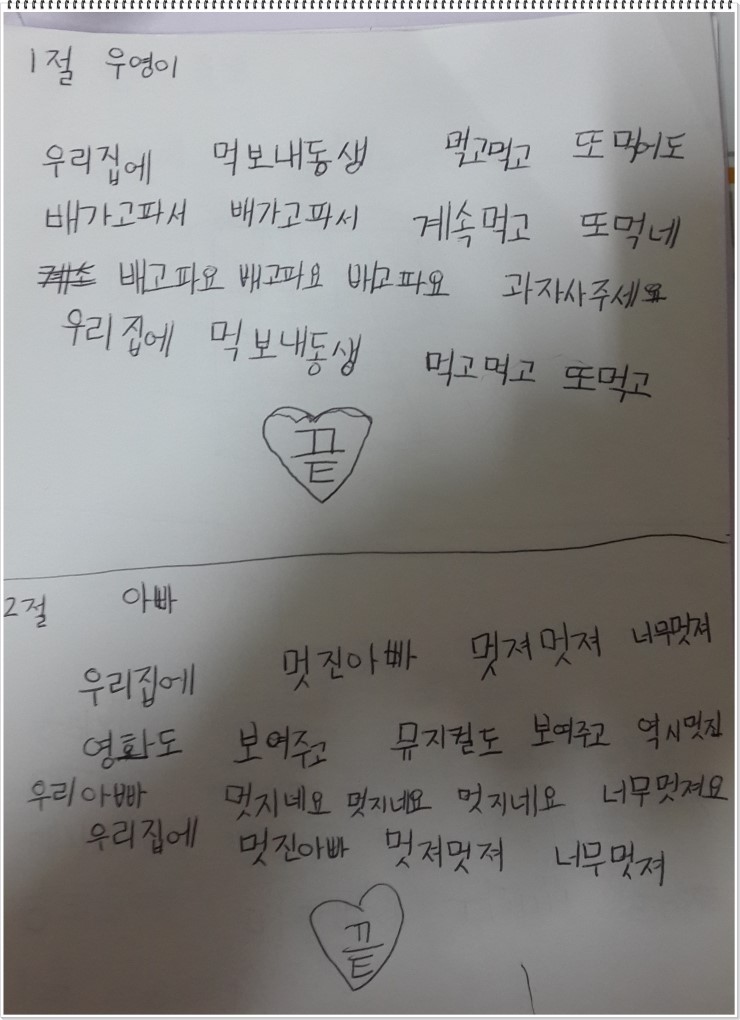 1절 우영이
우리집에 먹보내동생 먹고먹고 또먹어도
배가고파서 배가고파서 계속먹고 또먹네
배고파요 배고파요 배고파요 과자사주세요
우리집에 먹보내동생 먹고먹고 또먹고
끝
2절 아빠
우리집에 멋진아빠 멋져멋져 너무멋져
영화도 보여주고 뮤지컬도 보여주고 역시멋진
우리아빠 멋지네요 멋지네요 멋지네요 너무멋져요
우리집에 멋진아빠 멋져멋져 너무멋져
끝